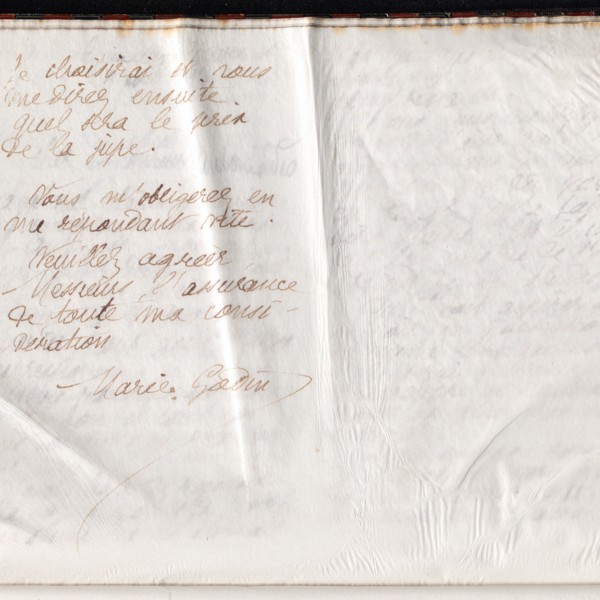 Je choisirai et vous
me direz ensuite
quel sera le prix
de la jupe.
Vous m'obligerez en
me répondant vite.
Veuillez agréer
Messieurs, l'assurance
de toute ma consi-
dération
Marie Godin